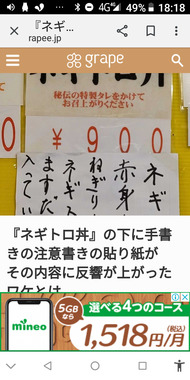 49% 18:18
『ネギ...
rapee.jp
grape
秘伝の特製タレをかけて
お召上がりください
0
¥900
ネギ
赤身
ねぎり
ネギト
ますだ
入ってい
『ネギトロ丼』の下に手書
きの注意書きの貼り紙が
その内容に反響が上がった
ワケとは
mineo
5GB
なら
選べる4つのコース
1,518円/月
(税込)